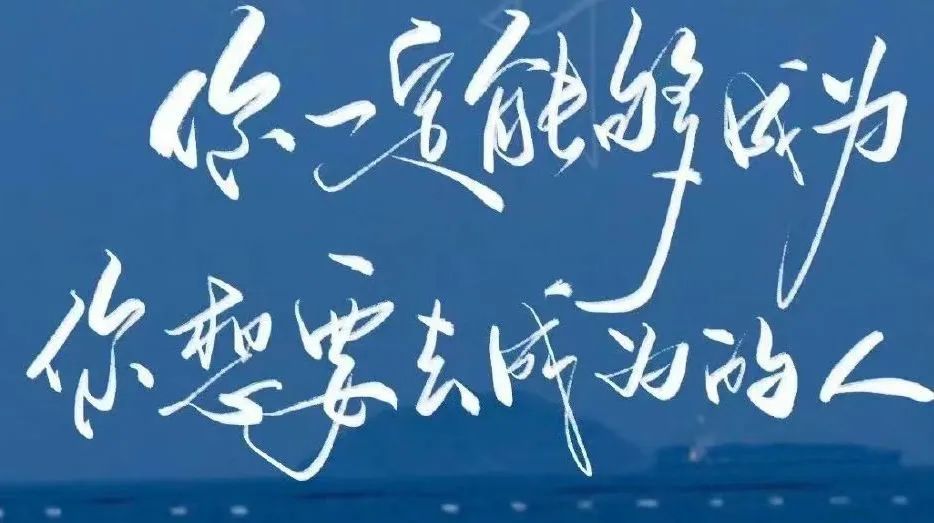 你一定能够成为
你想要去成为的人